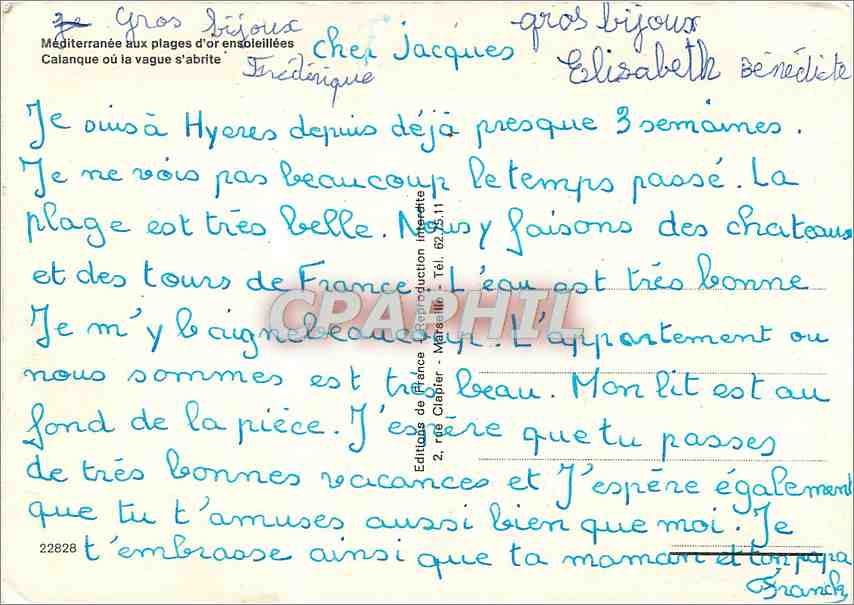 Gros bijoux
gros bijoux
Méditerranée aux plages d'or ensoleillées
Calanque où la vague s'abrite
cher Jacques
Frédérique
Elisabeth Bénédicte
Je suis à Hyeres depuis déjà presque 3 semaines.
Je ne vois pas beaucoup le temps passé. La
plage est très belle. Nous y faisons des chateaux
et des tours de France. L'eau est très bonne
Je m'y baigne beaucoup. L'appartement ou
nous sommes est très beau. Mon lit est au
fond de la pièce. J'espère que tu passes
de très bonnes vacances et J'espère également
que tu t'amuses aussi bien que moi. Je
t'embrasse ainsi que ta maman et ton papa
Franck
22828
Editions de France - Reproduction interdite
2, rue Clapier - Marseille - Tél. 62.75.11
CPAPHIL